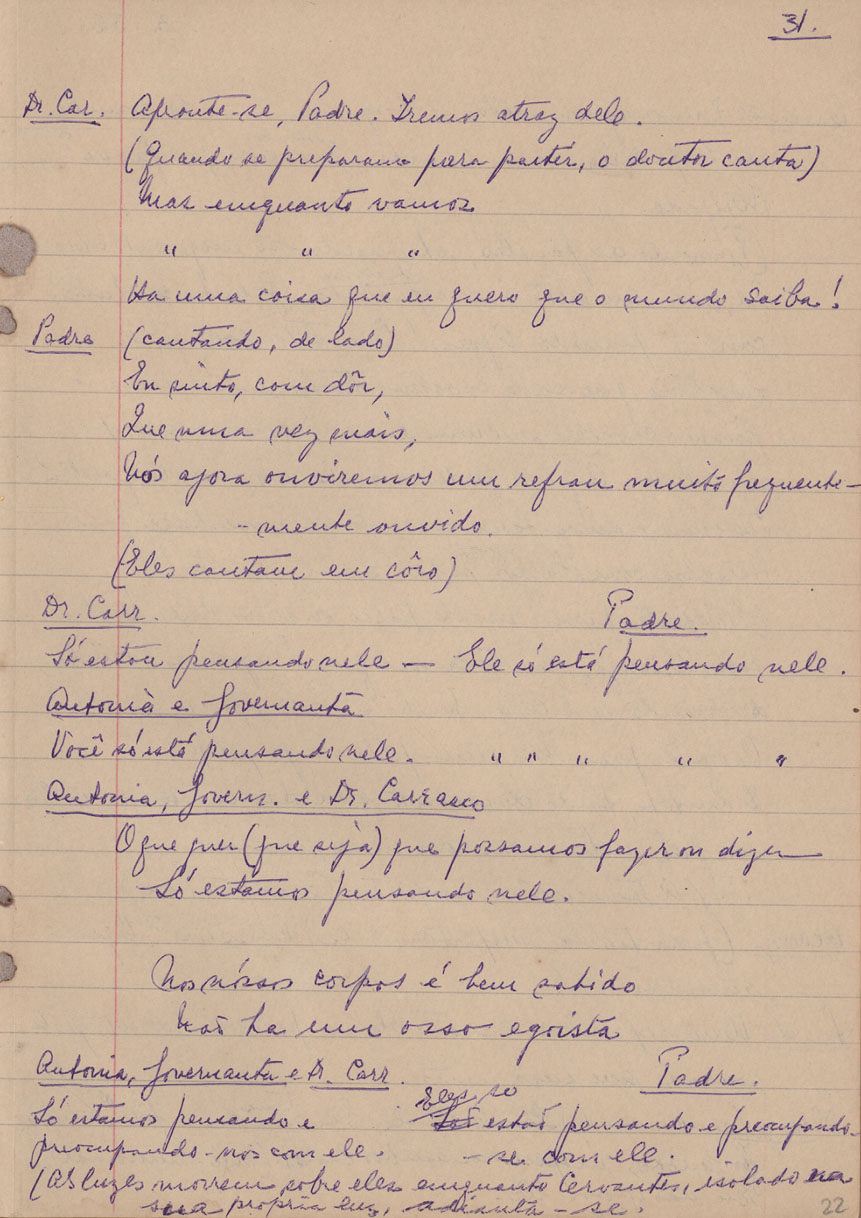 31.
Dr. Car. Apronte-se, Padre. Iremos atraz dele.
(Quando se preparam para partir, o doutor canta)
Mas emquanto vamos
" " "
Ha uma coisa que eu quero que o mundo saiba!
Padre (cantando, de lado)
Eu sinto, com dôr,
Que uma vez mais,
Nós agora ouviremos um refrau muito frequente-
-mente ouvido.
(Eles cantam em côro)
Dr. Carr. Padre.
Só estou pensando nele — Ele só está pensando nele.
Antonia e Governanta
Você só está pensando nele. " " " " "
Antonia, Govern. e Dr. Carrasco
O que quer (que seja) que possamos fazer ou dizer
Só estamos pensando nele.
Nos nóssos corpos é bem sabido
Não ha um osso egoista
Antonia, Governanta e Dr. Carr. Padre.
Só estamos pensando e Eles só estão pensando e preocupando-
preocupando-nos com ele. -se com ele.
(As luzes morrem sobre eles emquanto Cervantes, isolado na
sua propria luz, adianta-se.
22